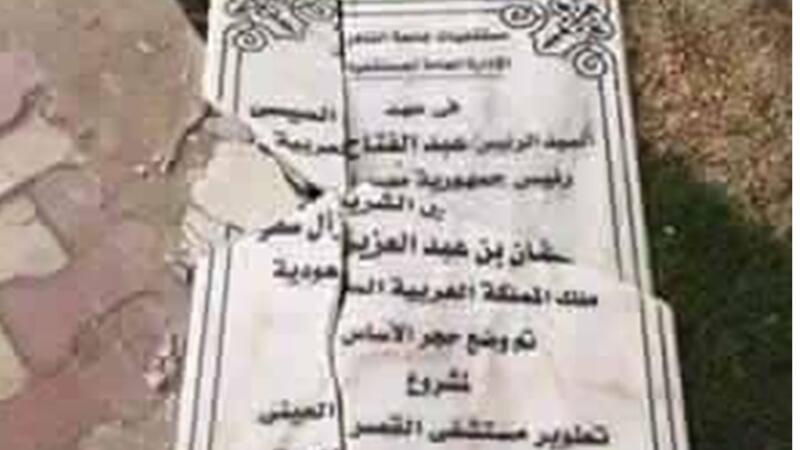 مستشفيات جامعة القاهرة
الإدارة العامة
فى عهد
السيد الرئيس عبد الفتاح السيسى
رئيس جمهورية مصر عربية
ين الشريف
ـمان بن عبد العزيز آل سعو
ملك المملكة العربية السعودية
تم وضع حجر الأساس
لمشروع
تطوير مستشفى القصر العينى